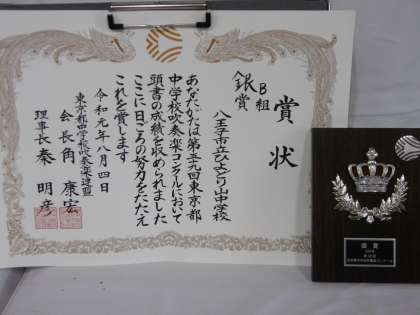 賞状
B組
銀賞
八王子市立ひよどり山中学校
あなたがたは第五九回東京都
中学校吹奏楽コンクールにおいて
頭書の成績を収められました
ここに日ごろの努力をたたえ
これを賞します
令和元年八月四日
東京都中学校吹奏楽連盟
会長 角 康宏
理事長 秦 明彦
銀賞